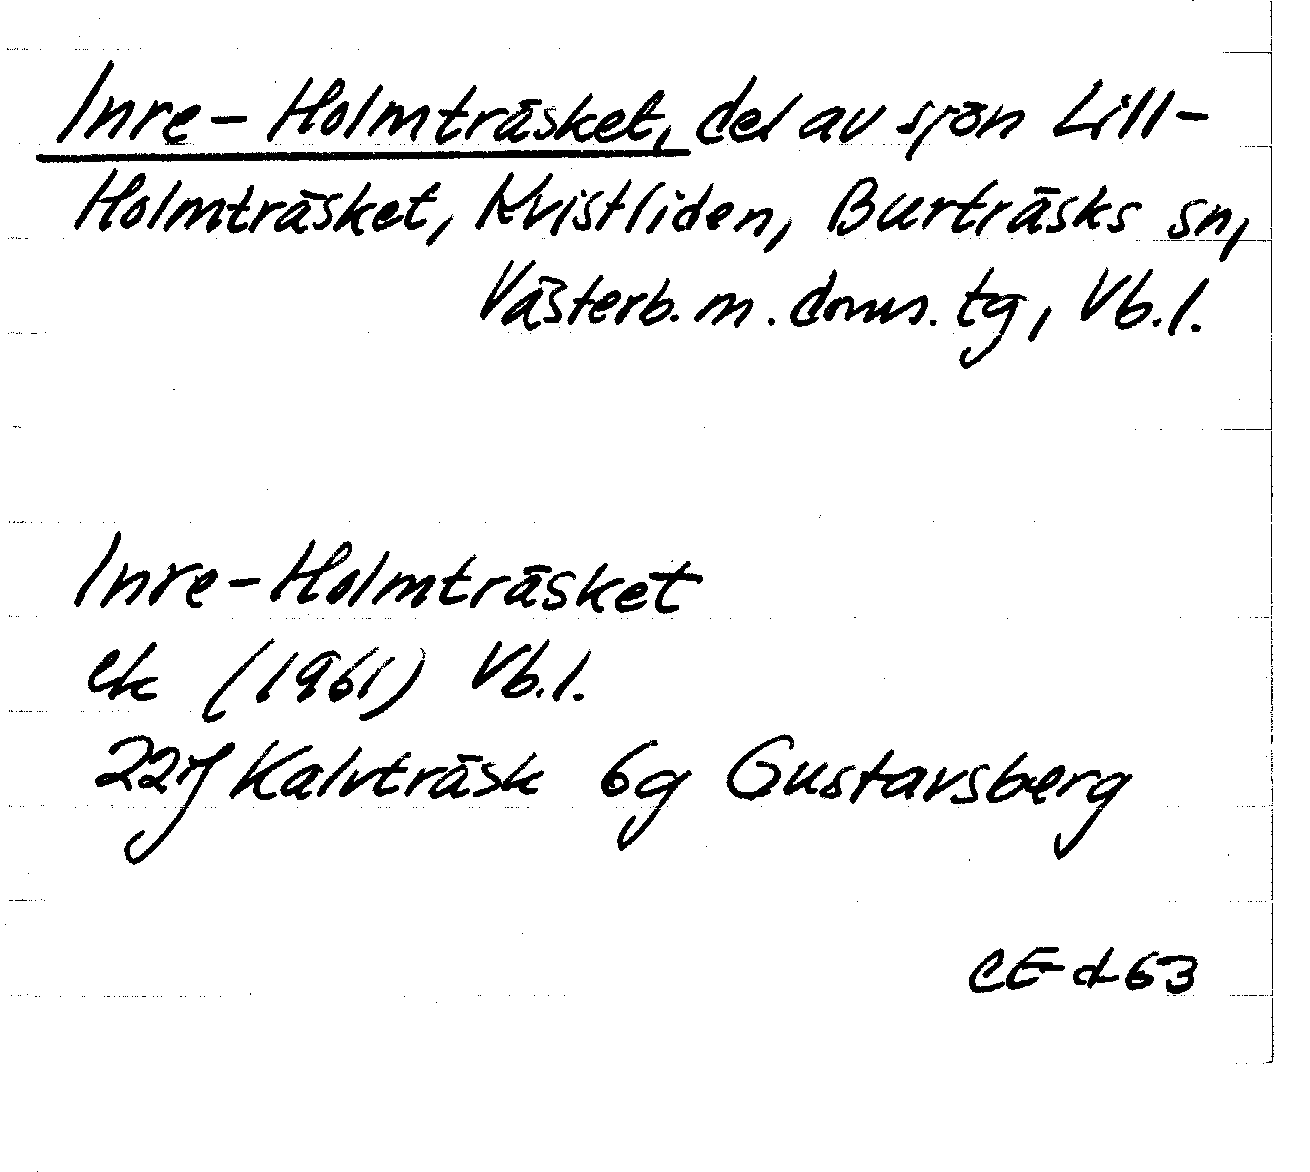 Inre-Holmträsket, del av sjön Lill-
Holmträsket, Kvistliden, Burträsks sn,
Västerb. m. doms. tg, Vb. l.
Inre-Holmträsket
ek (1961) Vb. l.
22J Kalvträsk 6g Gustavsberg
CE-d 63